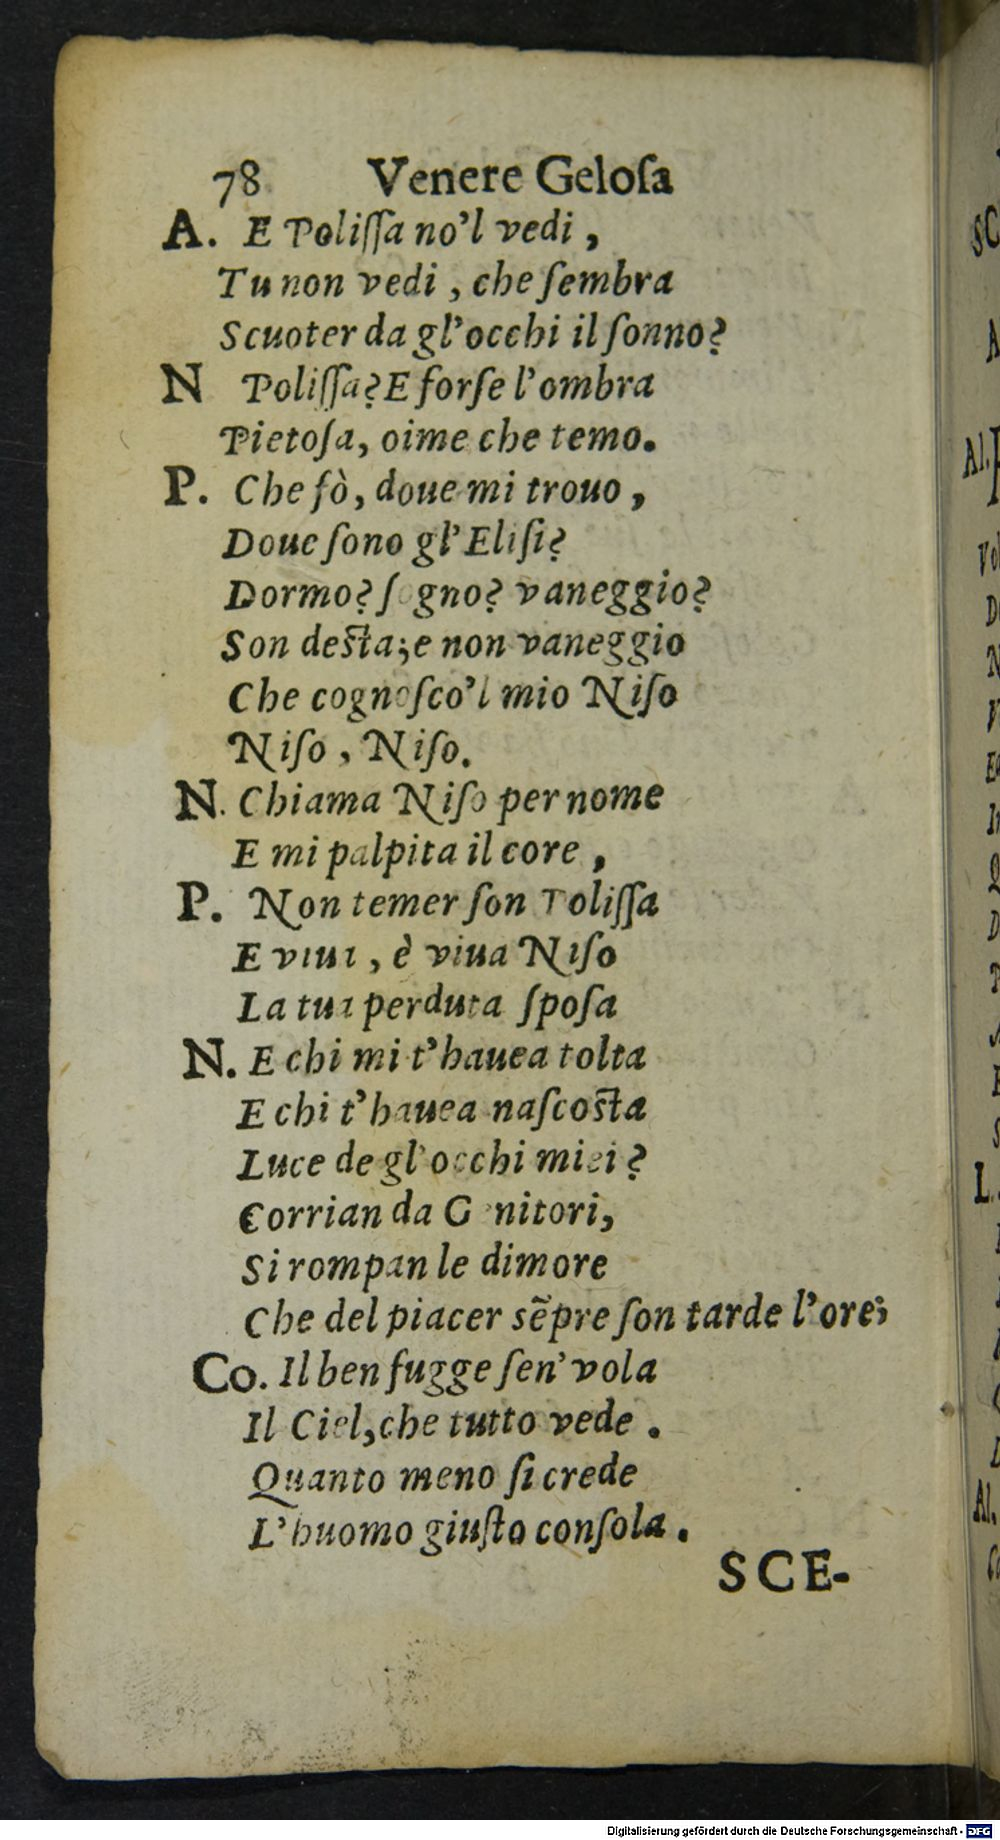 78 Venere Geloſa
A. E Poliſſa no'l vedi,
Tu non vedi, che ſembra
Scuoter da gl'occhi il ſonno?
N Poliſſa? E forſe l'ombra
Pietoſa, oime che temo.
P. Che fò, doue mi trouo,
Doue ſono gl'Eliſi?
Dormo? ſogno? vaneggio?
Son deſta; e non vaneggio
Che cognoſco'l mio Niſo
Niſo, Niſo.
N. Chiama Niſo per nome
E mi palpita il core,
P. Non temer ſon Poliſſa
E viui, è viua Niſo
La tua perduta ſpoſa
N. E chi mi t'hauea tolta
E chi t'hauea naſcoſta
Luce de gl'occhi miei?
Corrian da Genitori,
Si rompan le dimore
Che del piacer sēpre ſon tarde l'ore;
Co. Il ben fugge ſen' vola
Il Ciel, che tutto vede.
Quanto meno ſi crede
L'huomo giuſto conſola.
SCE-
Digitalisierung gefördert durch die Deutsche Forschungsgemeinschaft - DFG